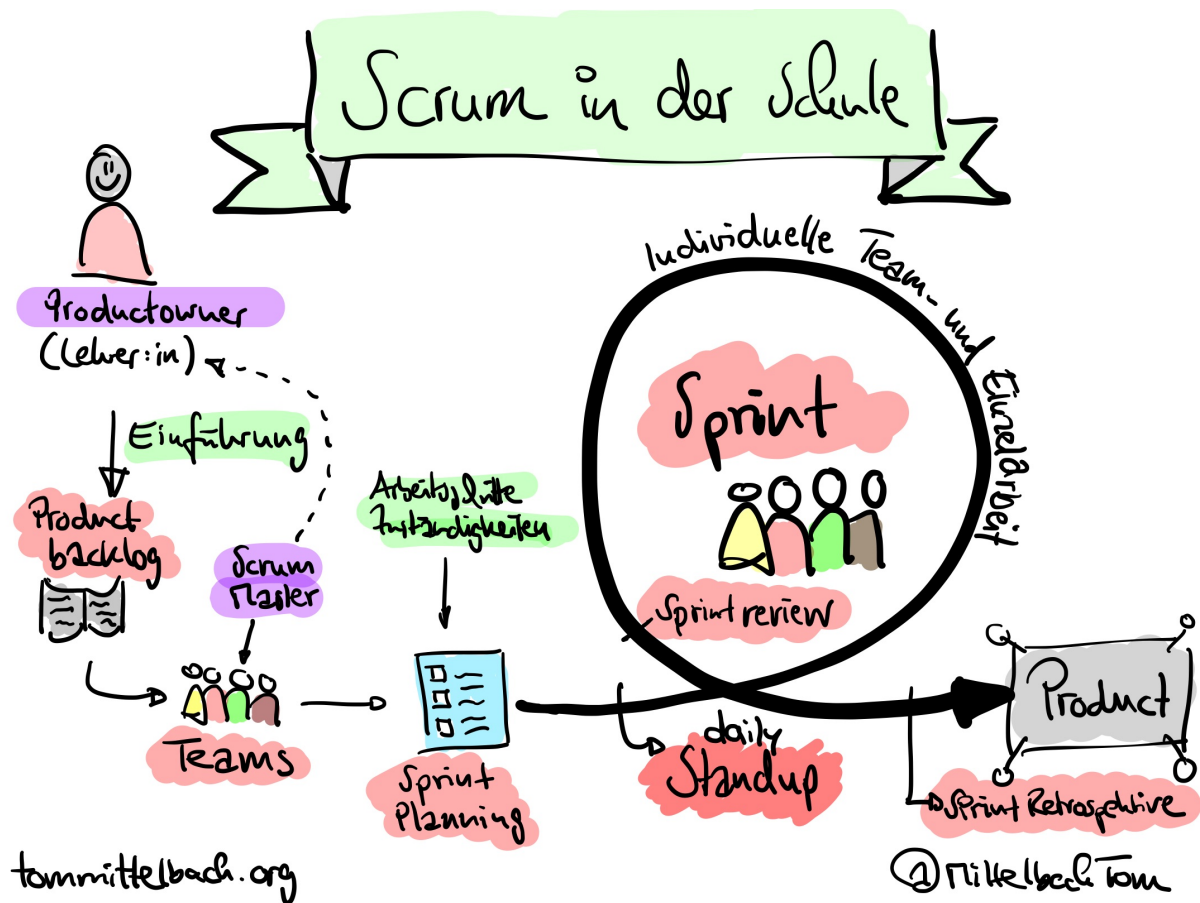 Scrum in der Schule
Productowner
(Lehrer:in)
Einführung
Product
backlog
Scrum
Master
Teams
Arbeitsschritte
Zuständigkeiten
Sprint
Planning
Individuelle Team- und Einzelarbeit
Sprint
Sprintreview
daily
Standup
Product
Sprint Retrospektive
tommittelbach.org
@MittelbachTom